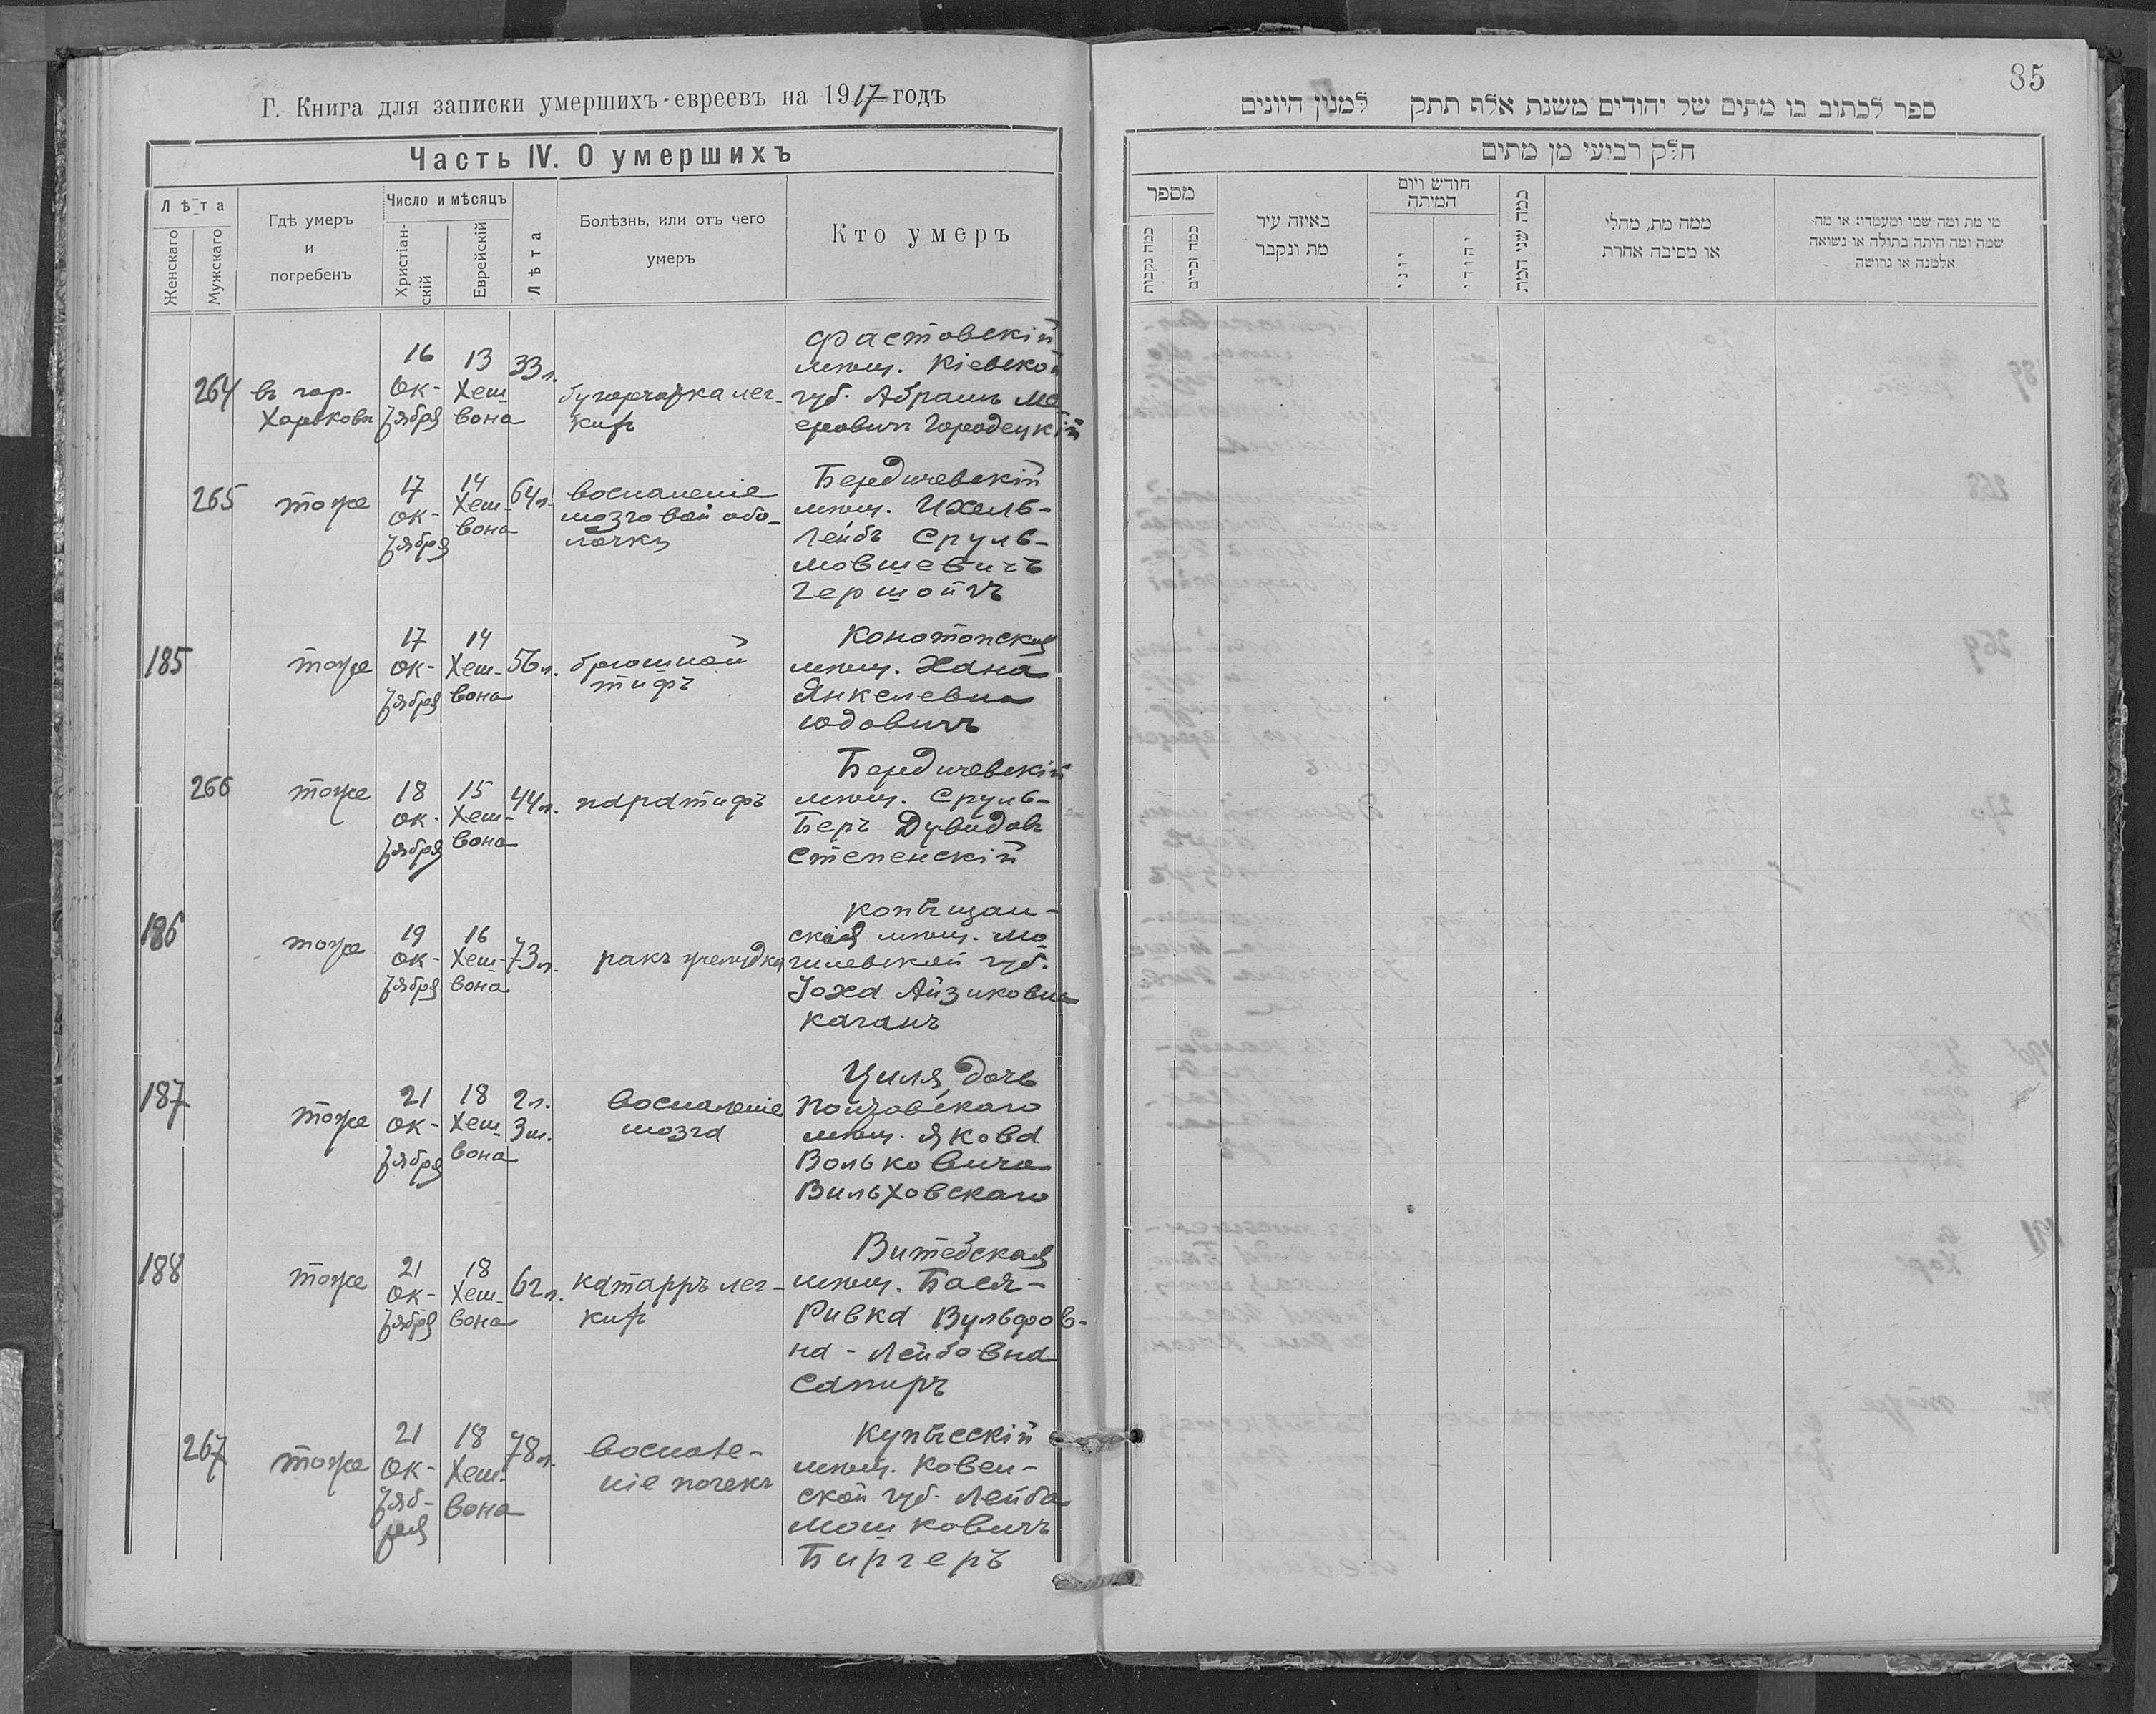 Г. Книга для записки умершихъ евреевъ на 1917 годъ
Часть IV. О умершихъ
Лѣта
Женскаго
Мужскаго
Гдѣ умеръ
и
погребенъ
Число и мѣсяцъ
Христіан-
скій
Еврейскій
Лѣта
Болѣзнь, или отъ чего
умеръ
Кто умеръ
264
въ гор.
Харьковѣ
16
Ок-
тября
13
Хеш
вона
33 л.
бугорчатка лег-
кихъ
Фастовскій
мѣщ. Кіевской
губ. Абрамъ Ме
еровичъ Городецкій
265
тоже
17
ок-
тября
14
Хеш-
вона
64 л.
воспаленіе
мозговой обо-
лочки
Бердичевскій
мѣщ. Ихель-
Лейбъ Сруль-
Мовшевичъ
185
тоже
17
ок-
тября
14
Хеш-
вона
56 л.
брюшной
тифъ
Конотопская
мѣщ. Хана
Янкелевна
Юдовичъ
266
тоже
18
ок-
тября
15
Хеш-
вона
44 л.
паратифъ
Бердичевскій
мѣщ. Сруль-
Беръ Дувидовъ
Степенскій
186
тоже
19
ок-
тября
16
Хеш-
вона
73 л.
ракъ желудка
ская мѣщ. Мо
гилевской губ.
Іоха Айзиковна
Каганъ
187
тоже
21
ок-
тября
18
Хеш
вона
2 л.
3 м.
воспаленіе
мозга
Циля, дочь
мѣщ. Якова
Вольковича
Вильховскаго
188
тоже
21
ок-
тября
18
Хеш-
вона
62 л.
катарръ лег-
кихъ
Витебская
мѣщ. Бася-
Ривка Вульфов-
на-Лейбовна
Сапиръ
267
тоже
21
ок-
тяб-
ря
18
Хеш-
вона
78 л.
воспале-
ніе почекъ
мѣщ. Ковен-
ской губ. Лейба
Мошковичъ
Биргеръ
85
ספר לכתוב בו מתים של יהודים משנת אלף תתק למנין היונים
חלק רביעי מן מתים
מספר
כמה נקבות
כמה זכרים
באיזה עיר
מת ונקבר
חודש ויום
המיתה
יוני
יהודי
כמה שני המת
ממה מת, מהלי
או מסיבה אחרת
מי מת ומה שמו ומעמדו: או מה
שמה ומה היתה בתולה או נשואה
אלמנה או גרושה